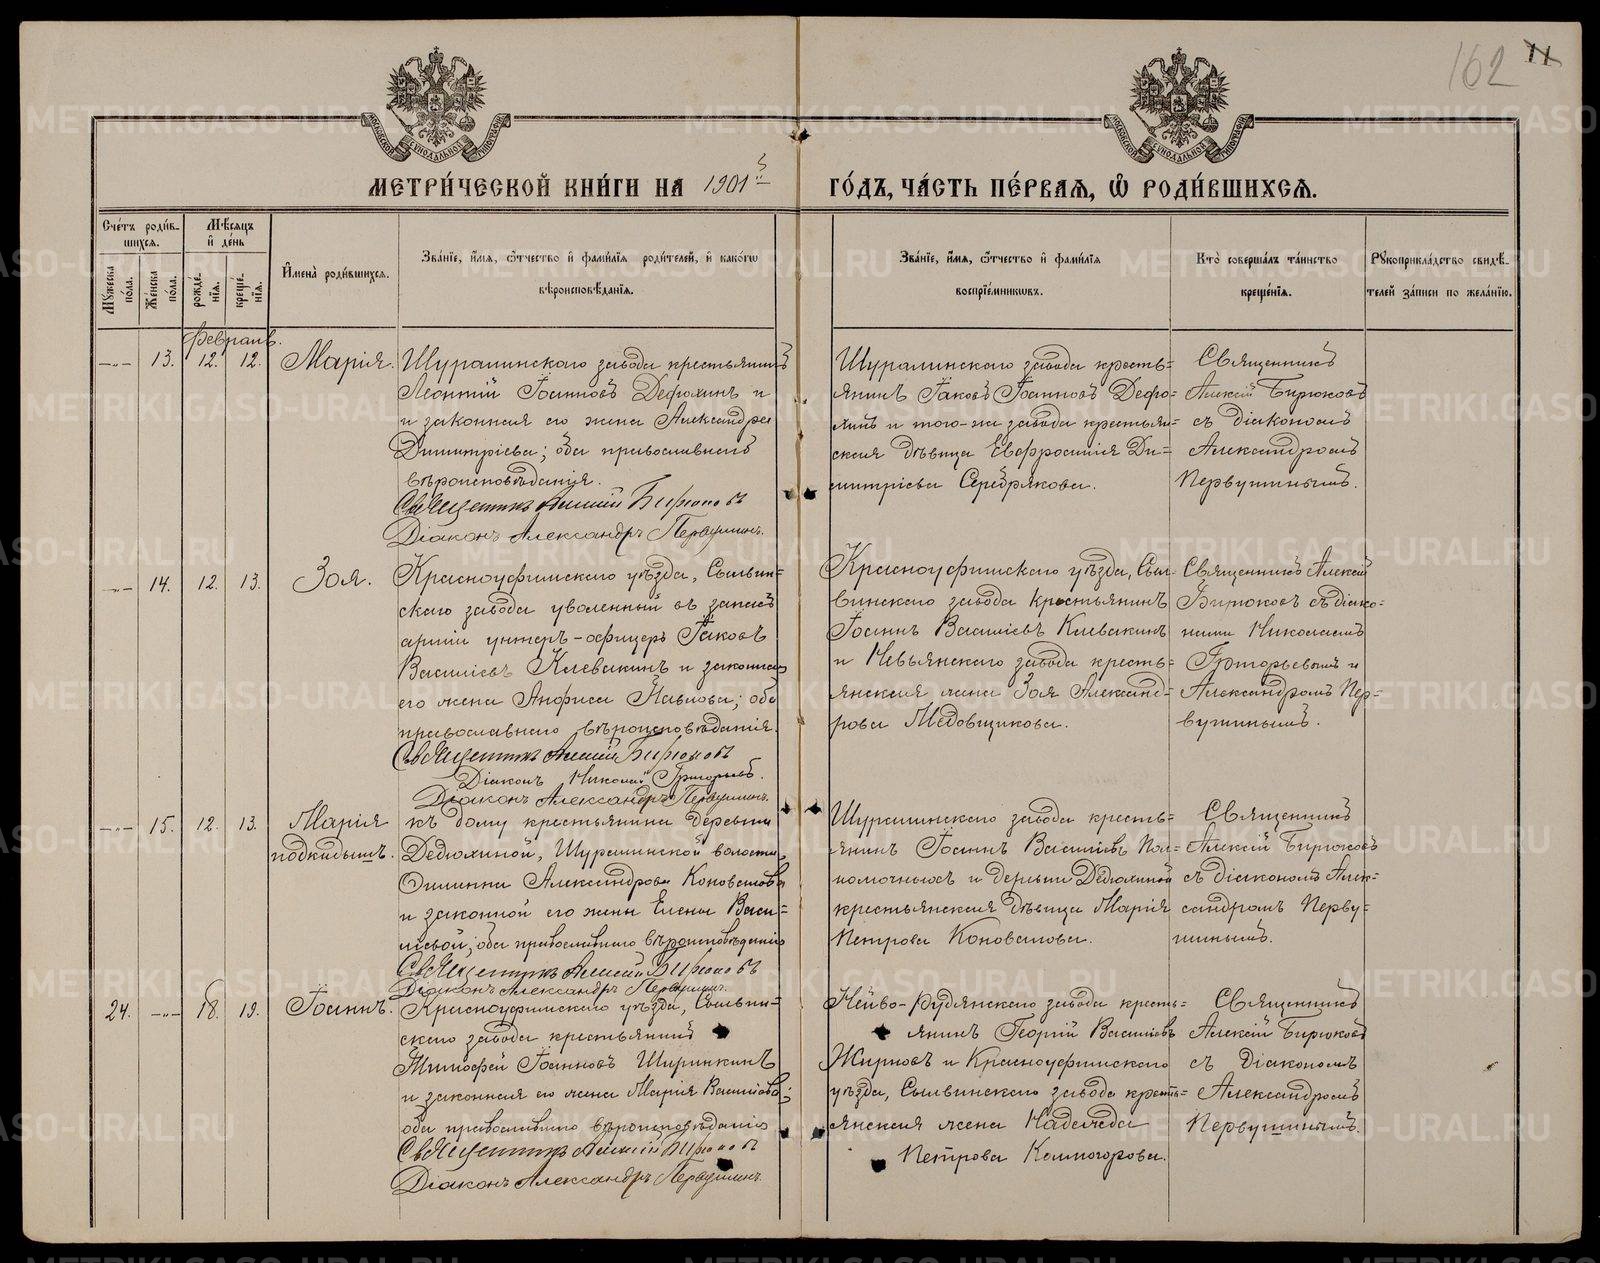 162 11
МОСКОВСКОЙ СѴНОДАЛЬНОЙ ТИПОГРАФІИ
МОСКОВСКОЙ СѴНОДАЛЬНОЙ ТИПОГРАФІИ
МЕТРИ́ЧЕСКОЙ КНИ́ГИ НА 1901й ГО́ДЪ, ЧА́СТЬ ПЕ́РВАЯ, Ѡ҆ РОДИ́ВШИХСЯ.
Сче́тъ роди́в-
шихся.
Мѣ́сяцъ
и҆ де́нь
Мꙋ́жеска по́ла.
Же́нска по́ла.
рожде́-
нїя.
креще́-
нїя.
И҆мена̀ роди́вшихся.
Зва́нїе, и҆́мя, ѻ҆́тчество и҆ фами́лїя роди́телей, и҆ како́гѡ
вѣроисповѣ́данїя.
Зва́нїе, и҆́мя, ѻ҆́тчество и҆ фами́лїя
воспрїе́мникѡвъ.
Кто̀ соверша́лъ та́инство
креще́нїя.
Рꙋкоприкла́дство свидѣ́-
телей за́писи по жела́нїю.
Февраль.
13. 12. 12. Марія.
Шуралинскаго завода крестьянинъ
Леонтій Іоанновъ Дефохинъ и
и законная его жена Александра
Димитріева; оба православнаго
вѣроисповѣданія.
Священникъ Алексій Бирюковъ
Діаконъ Александръ Первушинъ.
Шуралинскаго завода кресть=
янинъ Іаковъ Іоанновъ Дефо-
и того-же завода крестьян=
ская дѣвица Евфросинія Ди-
митріева Серебрякова.
Священникъ
Алексій Бирюковъ
съ діакономъ
Александромъ
Первушинымъ.
14. 12. 13. Зоя.
Красноуфимскаго уѣзда, Сылвин=
скаго завода уволенный въ запасъ
арміи унтеръ-офицеръ Іаковъ
Василіевъ Клевакинъ и законная
его жена Анфиса Павлова; оба
православнаго вѣроисповѣданія.
Священникъ Алексій Бирюковъ
Діаконъ Николай Григорьевъ.
Діаконъ Александръ Первушинъ.
Красноуфимскаго уѣзда, Сыл-
винскаго завода крестьянинъ
Іоаннъ Василіевъ Клевакинъ
и Невьянскаго завода кресть-
янская жена Зоя Александ-
рова Медовщикова.
Священникъ Алексій
Бирюковъ съ діако=
нами Николаемъ
Григорьевымъ и
Александромъ Пер=
вушинымъ.
15. 12. 13. Марія
подкидышъ.
къ дому крестьянина деревни
Дедюхиной, Шуралинской волости,
Александрова Коновалова
и законной его жены Елены Васи=
лівой; оба православнаго вѣроисповѣданія
Священникъ Алексій Бирюковъ
Діаконъ Александръ Первушинъ.
Шуралинскаго завода кресть=
янинъ Іоаннъ Василіевъ Пол=
номочныхъ и деревни Дедюхиной
крестьянская дѣвица Марія
Петрова Коновалова.
Священникъ
Алексій Бирюковъ
съ діакономъ Алек=
сандромъ Перву=
шинымъ.
24. 18. 19. Іоаннъ.
Красноуфимскаго уѣзда, Сылвин=
скаго завода крестьянинъ
Тимофей Іоанновъ Ширинкинъ
и законная его жена Марія Василіева;
оба православнаго вѣроисповѣданія
Священникъ Алексій Бирюковъ
Діаконъ Александръ Первушинъ.
Нейво-Рудянскаго завода кресть=
янинъ Георгій Василіевъ
Жирновъ и Красноуфимскаго
уѣзда, Сылвинскаго завода кресть=
янская жена Надежда
Петрова Колмогорова.
Священникъ
Алексій Бирюковъ
съ діакономъ
Александромъ
Первушинымъ.
METRIKI.GASO-URAL.RU